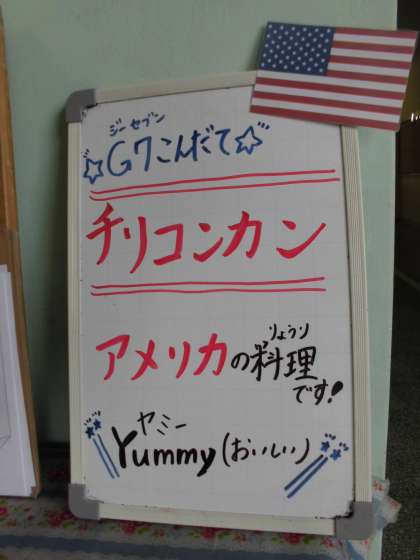 ジーセブン
☆G7こんだて☆
チリコンカン
アメリカの料理
りょうり
です!
ヤミー
Yummy(おいしい)